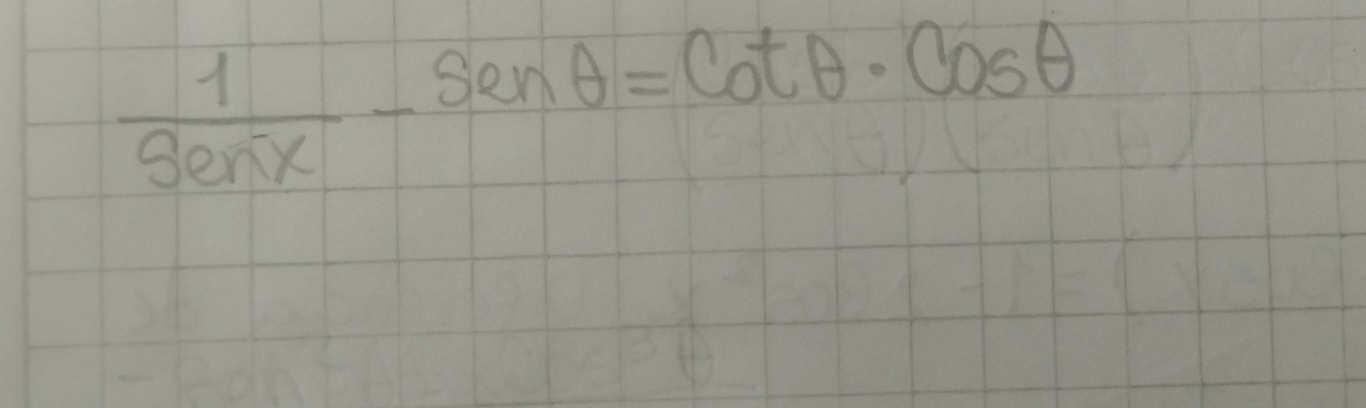 1/Senx - Sen θ = Cot θ · Cosθ